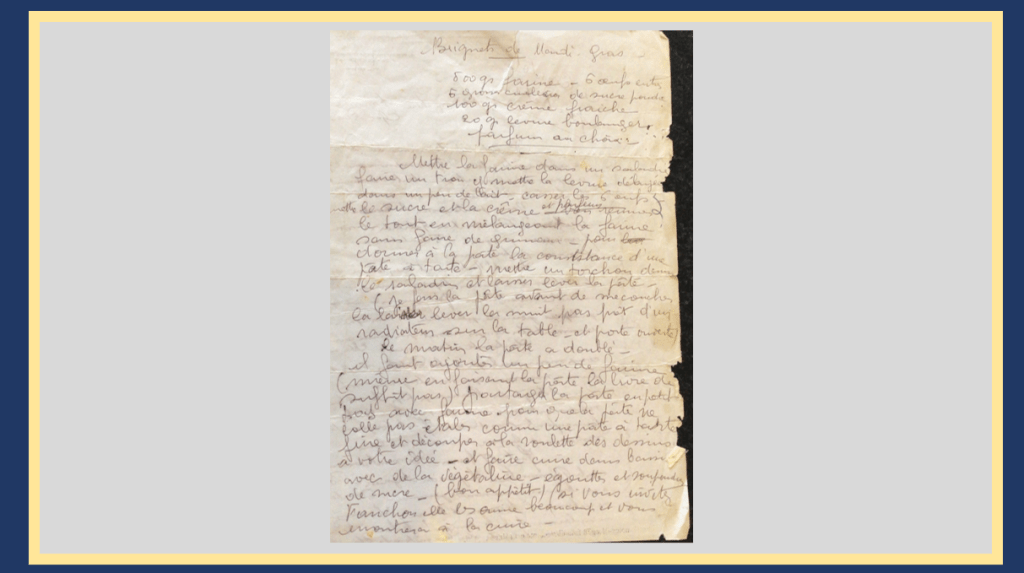 Beignets de Mardi-Gras
800 gs farine - 5 œufs entiers
5 grosses cuillères de sucre poudre
100 gs crème fraîche
20 gs levure boulanger.
parfum au choix
Mettre la farine dans un saladier
faire un trou et mettre la levure délayée
dans un peu de lait - casser les 5 œufs
le sucre et la crème et parfum
le tout en mélangeant la farine
sans faire de grumeau - pour
donner à la pâte la consistance d'une
pâte à tarte - mettre un torchon dessus
le saladier et laisser lever la pâte -
(je fais la pâte avant de me coucher
la laisse lever la nuit pas prêt d'un
radiateur sur la table - et porte ouverte
le matin la pâte a doublé -
il faut ajouter un peu de farine
(même en faisant la pâte la livre de
suffit pas) partager la pâte en petit
avec farine pour que la pâte ne
colle pas étaler comme une pâte à tarte
fine et découper à la roulette des dessins
à votre idée - et faire cuire dans
avec de la végétaline - égouttez et saupoudrez
de sucre - (bon appétit) si vous invitez
Fanchon elle les aime beaucoup et vous
à la cuire -